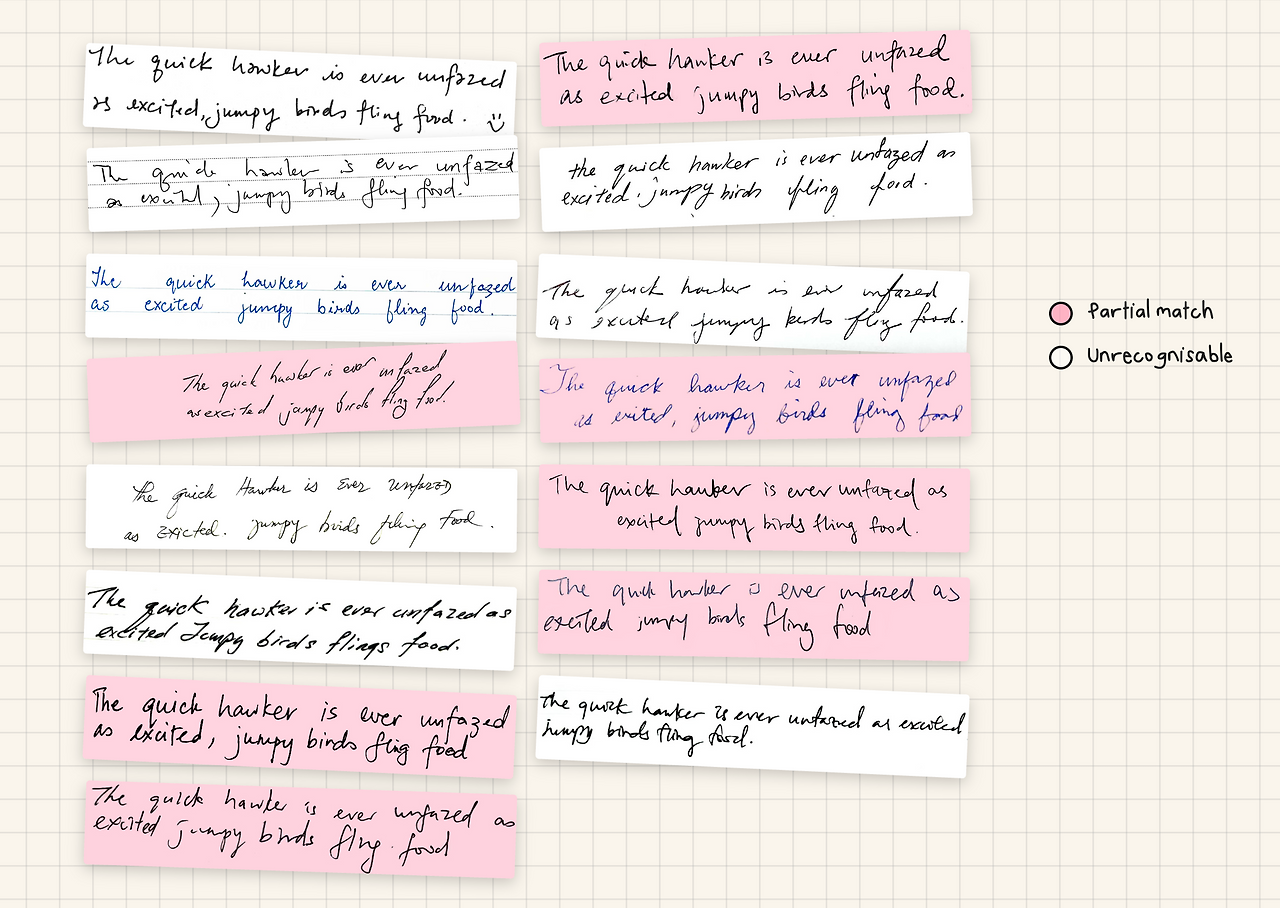 The quick hawker is ever unfazed
as excited, jumpy birds fling food. :)
The quick hawker is ever unfazed
as excited, jumpy birds fling food.
The quick hawker is ever unfazed
as excited jumpy birds fling food.
The quick hawker is ever unfazed
as excited jumpy birds fling food.
The quick Hawker is Ever Unfazed
as Exicted. jumpy birds fling Food.
The quick hawker is ever unfazed as
excited Jumpy birds flings food.
The quick hawker is ever unfazed
as excited, jumpy birds fling food
The quick hawker is ever unfazed as
excited jumpy birds fling food
The quick hawker is ever unfazed
as excited jumpy birds fling food.
the quick hawker is ever unfazed as
excited. jumpy birds fling food.
The quick hawker is ever unfazed
as excited jumpy birds fling food.
The quick hawker is ever unfazed
as exited, jumpy birds fling food
The quick hawker is ever unfazed as
excited jumpy birds fling food.
The quick hawker is ever unfazed as
excited jumpy birds fling food
the quick hawker is ever unfazed as excited
jumpy birds fling food.
Partial match
Unrecognisable